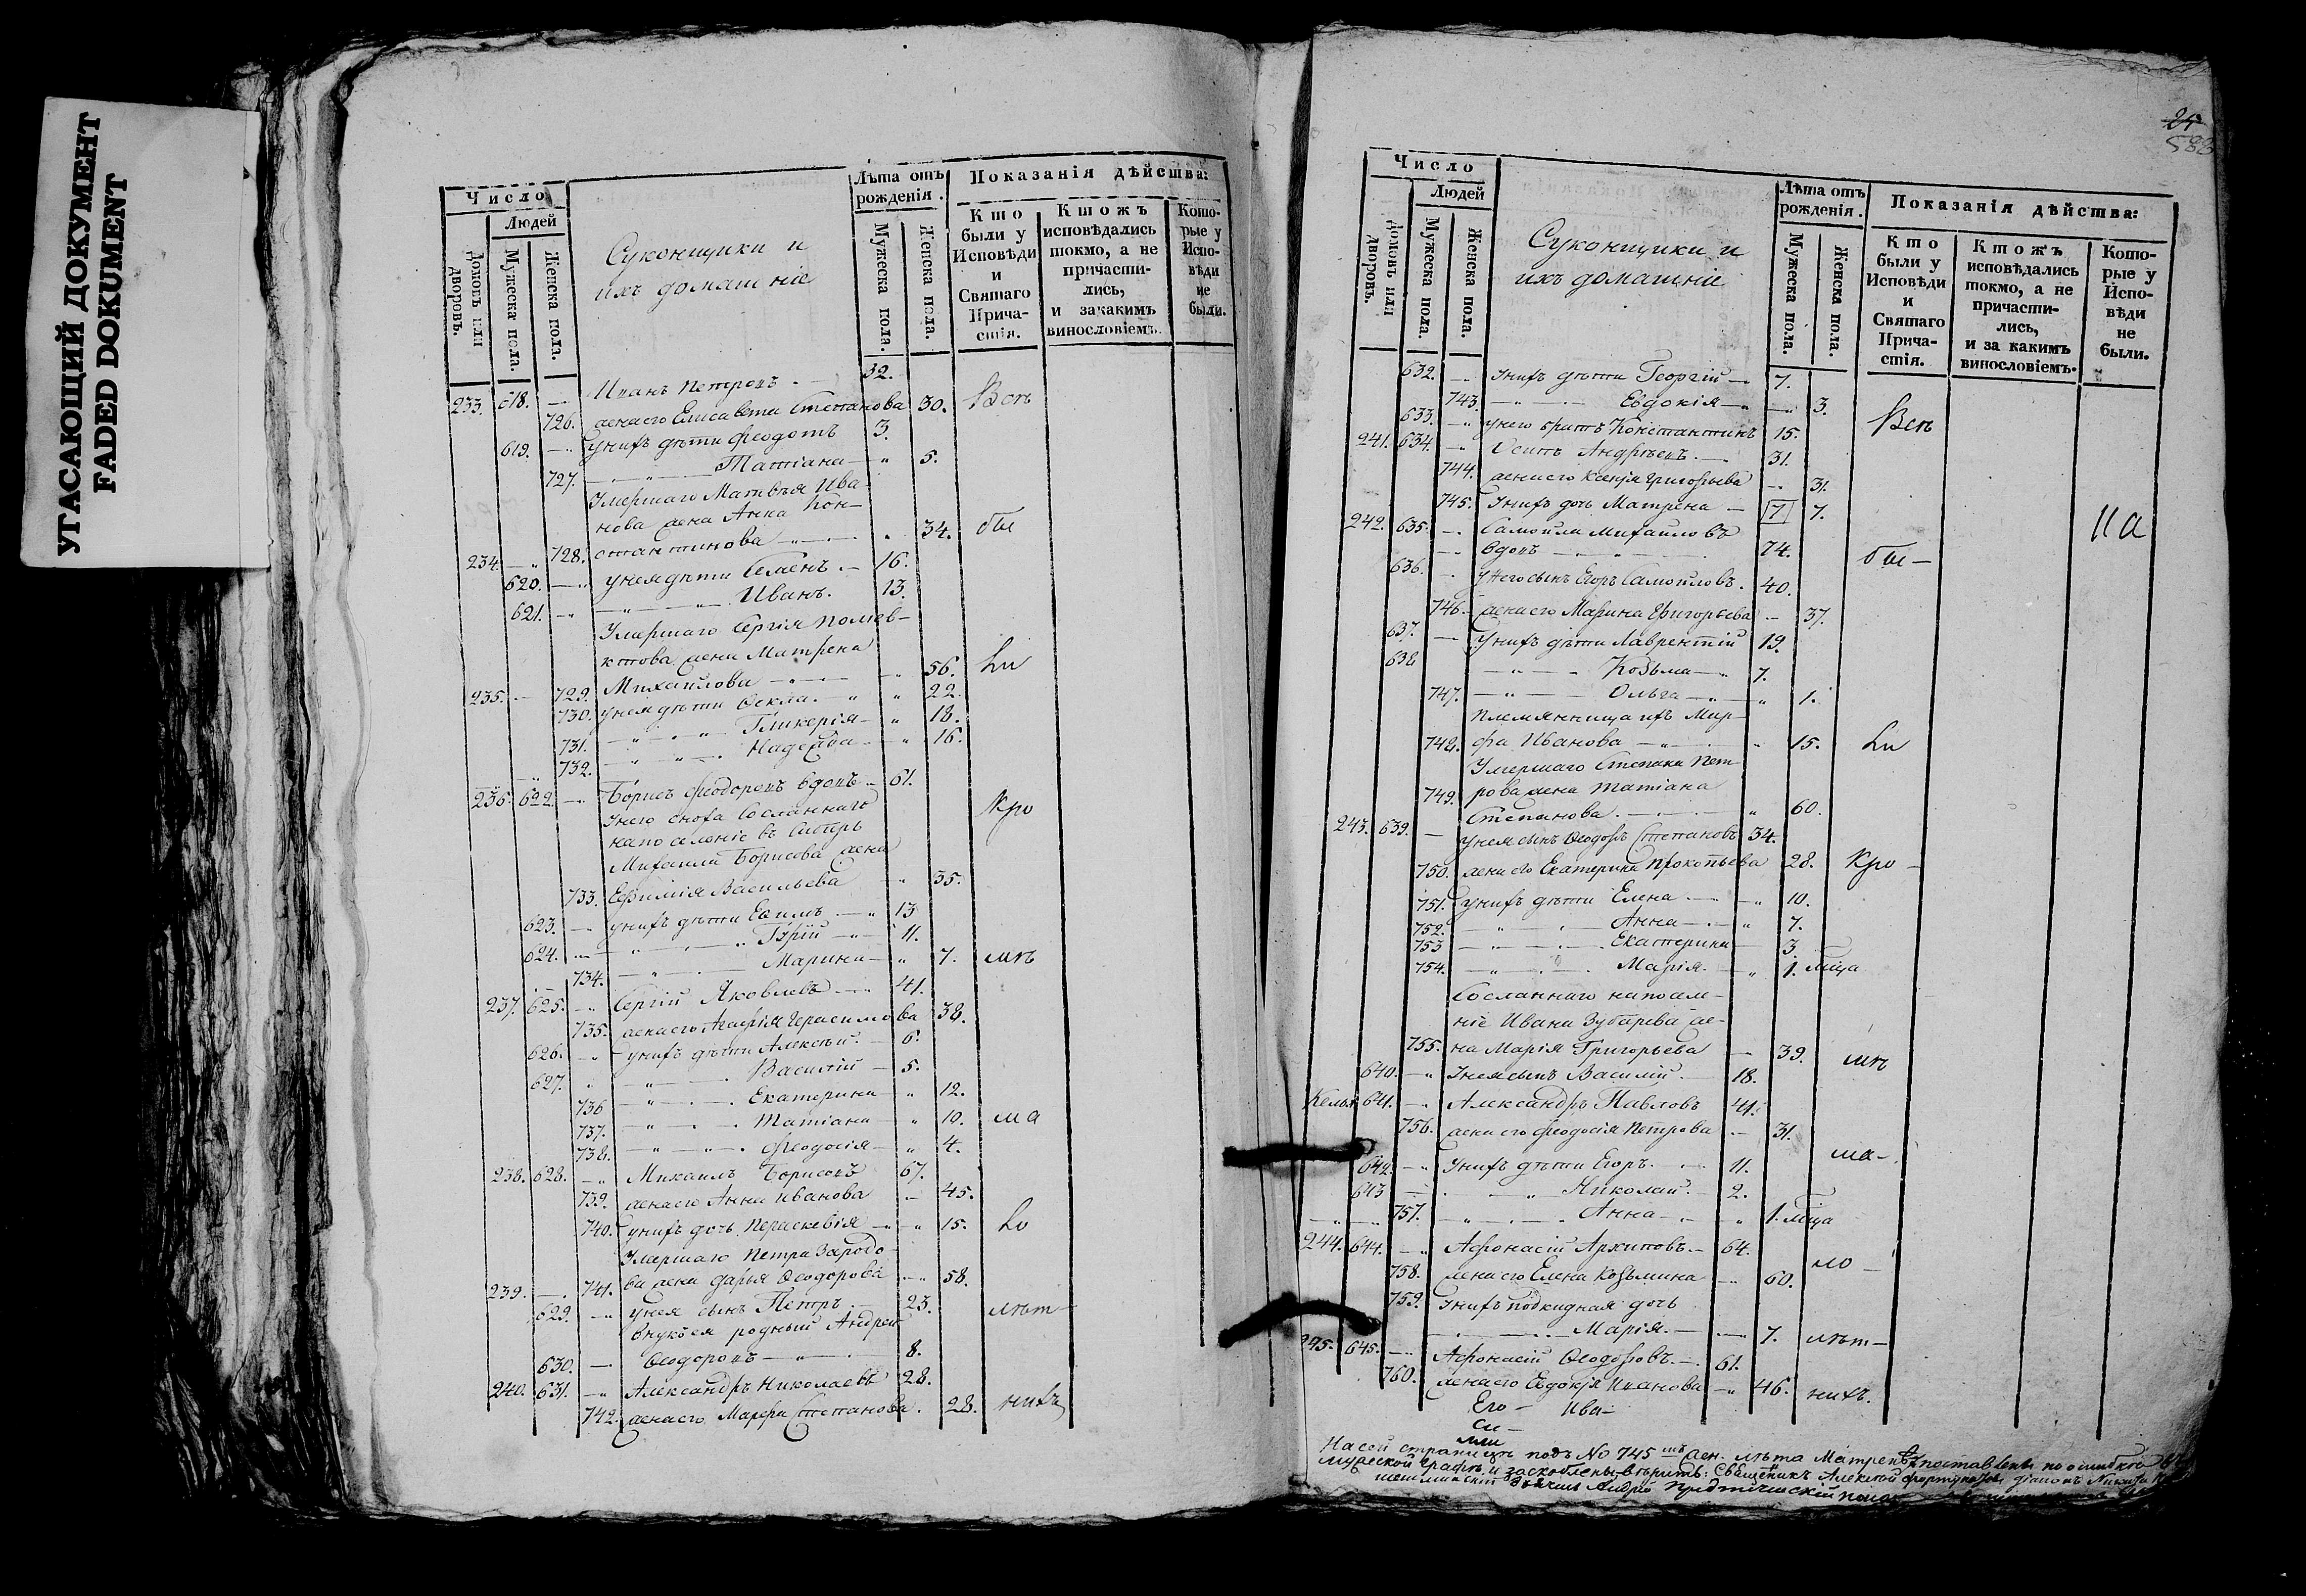 УГАСАЮЩИЙ ДОКУМЕНТ
FADED DOKUMENT
Число
Людей
Домовъ или дворовъ.
Мужеска пола.
Женска пола.
Суконщики и
ихъ домашніе
Лѣта отъ
рожденія.
Мужеска пола.
Женска пола.
Показанія дѣйства:
Кто
были у
Исповѣди
и
Святаго
Прича-
стія.
Ктожъ
исповѣдались
токмо, а не
причасти-
лись,
и за какимъ
винословіемъ.
Кото-
рые у
Испо-
вѣди
не
были.
233. 618. — Иванъ Петровъ. — 32.
726. жена его Елисавета Степанова 30. Всѣ
619. — у нихъ дѣти Феодотъ 3.
727. — Татіана — 5.
Умершаго Матвѣя Ива-
нова жена Анна Кон-
234. — 728. стантинова — 34. бы
620. — у нея дѣти Семенъ. — 16.
621. — Иванъ. 13.
Умершаго Сергія Полиев-
ктова жена Матрена
235. — 729. Михайлова — 56. ли
730. у нея дѣти Ѳекла. 22.
731. Гликерія — 18.
732. Надежда — 16.
236. 622. — Борисъ Феодоровъ вдовъ — 61.
У него сноха Сосланнаго
на поселеніе въ Сибирь
Михаила Борисова жена
733. Ефимія Васильева 35.
Кро
623. — у нихъ дѣти Евѳимъ — 13
624. — Гурій — 11.
734. Марина — 7. мѣ
237. 625. — Сергій Яковлевъ — 41.
735. жена его Агафія Герасимова 38.
626. — у нихъ дѣти Алексѣй. — 6.
627. Василій — 5.
736 Екатерина 12.
737. Татіана 10. ма
738. Феодосія — 4.
238. 628. — Михаилъ Борисовъ 67.
739. жена его Анна Иванова — 45.
740. у нихъ дочь Параскевія — 15. ло
Умершаго Петра Зародо-
239. — 741. ва жена Дарья Ѳеодорова 58.
629. — у нея сынъ Петръ — 23. лѣт—
внукъ ея родный Андрей
630. — Ѳеодоровъ — 8.
240. 631. — Александръ Николаевъ 28.
742. жена его Марфа Степанова. 28. нихъ
24
588
Число
Людей
Домовъ или дворовъ.
Мужеска пола.
Женска пола.
Суконщики и
ихъ домашніе
Лѣта отъ
рожденія.
Мужеска пола.
Женска пола.
Показанія дѣйства:
Кто
были у
Исповѣди
и
Святаго
Прича-
стія.
Ктожъ
исповѣдались
токмо, а не
причасти-
лись,
и за какимъ
винословіемъ.
Кото-
рые у
Испо-
вѣди
не
были.
632. — У нихъ дѣти Георгій — 7.
743. Евдокія — 3.
633. — у него братъ Константинъ 15. Всѣ
241. 634. — Осипъ Андреевъ. — 31.
744. жена его Ксенія Григорьева — 31.
745. У нихъ дочь Матрена — 7 7.
242. 635. — Самойла Михайловъ
вдовъ — 74. бы—
На
636. — у него сынъ Егоръ Самойловъ. 40.
746. жена его Марина Григорьева — 37.
637. — У нихъ дѣти Лаврентій 19.
638 Козьма — 7.
747. Ольга — 1.
Племянница ихъ Мар-
748. фа Иванова — 15. ли
Умершаго Степана Пет-
749. рова жена Татіана
Степанова. — 60.
243. 639. — у нея сынъ Ѳеодоръ Степановъ 34.
750. жена его Екатерина Прокопьева 28. Кро—
751. у нихъ дѣти Елена — 10.
752. Анна — 7.
753 Екатерина 3.
754. Марія. — 1. мѣца
Сосланнаго на после-
ніе Ивана Зубарева же-
755. на Марія Григорьева — 39. мѣ
640. — У нея сынъ Василій. — 18.
Келья 641. — Александръ Павловъ 41.
756. жена его Феодосія Петрова — 31.
642. — У нихъ дѣти Егоръ. 11. ма—
643 — Николай. — 2.
757. Анна — 1. мѣца
244. 644. — Афонасій Архиповъ. — 64.
758. жена его Елена Козьмина — 60. ло—
759. У нихъ подкидная дочь
Марія. — 7. лѣт—
245. 645. — Афонасій Ѳеодоровъ. — 61.
760. жена его Евдокія Иванова — 46. нихъ.
Его — Ива—
На сей страницѣ подъ № 745 жен. лѣта Матрены поставлены по ошибкѣ въ
мужеской графѣ и заскоблены вѣрить: Священникъ Алексѣй
Андрей Предтеченскій